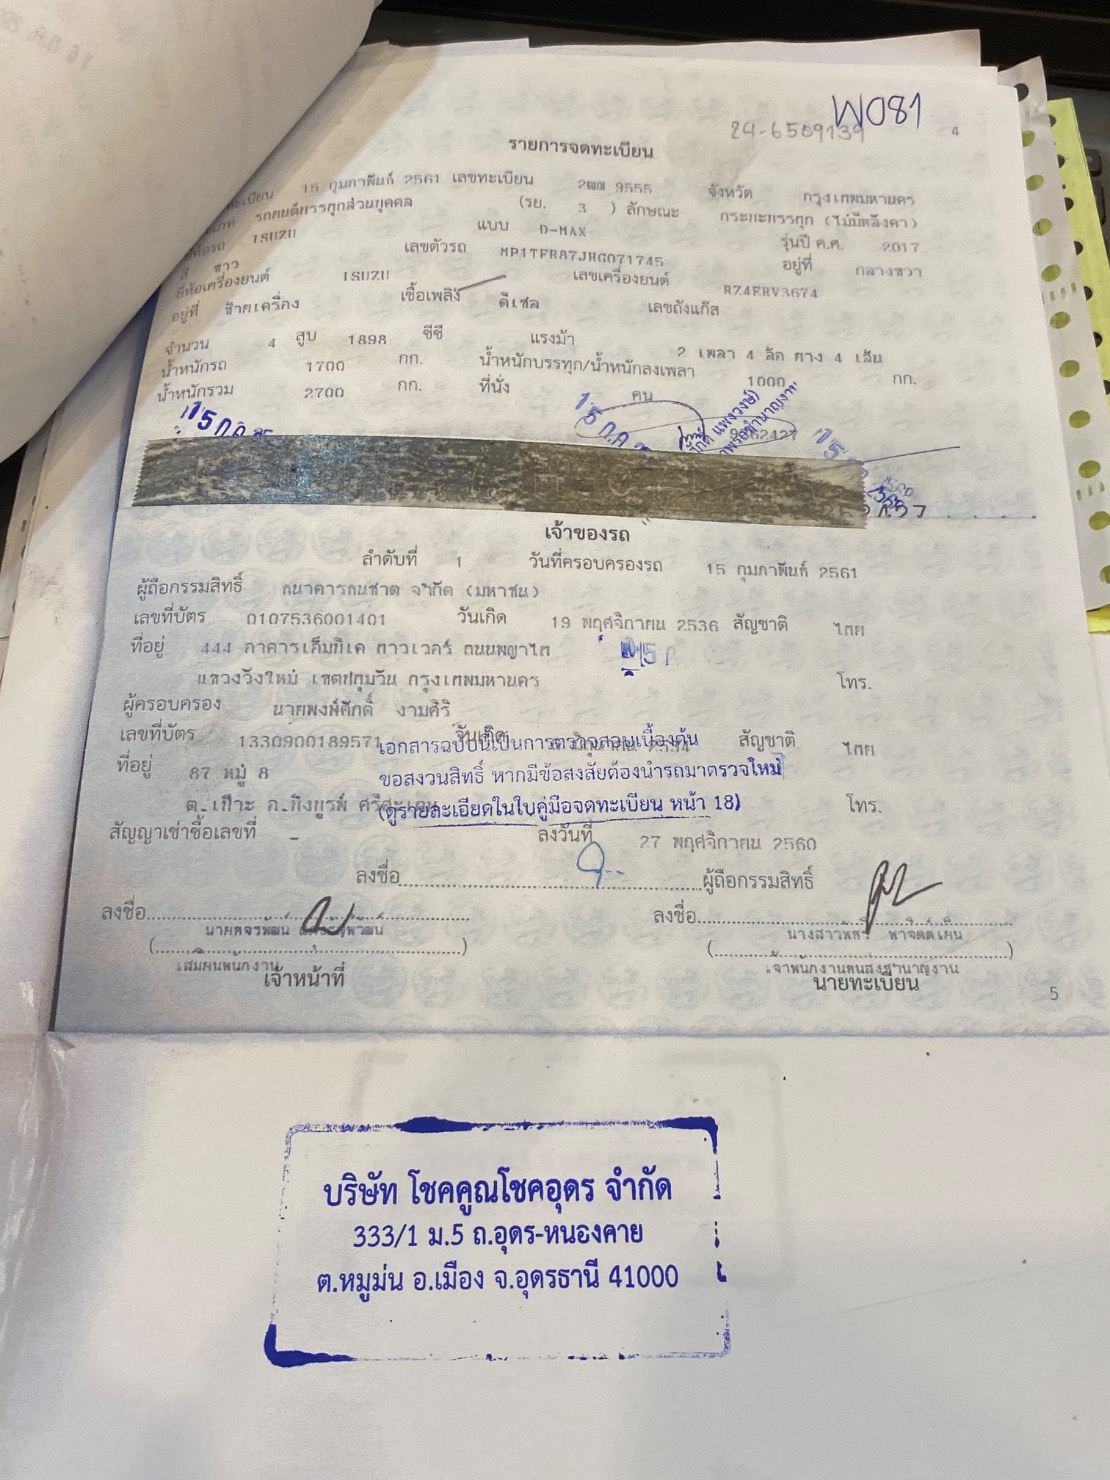 W081
24-6509139
4
รายการจดทะเบียน
15 กุมภาพันธ์ 2561 เลขทะเบียน 2ฒฌ 9555 จังหวัด กรุงเทพมหานคร
รถยนต์บรรทุกส่วนบุคคล (รย. 3 ) ลักษณะ กระบะบรรทุก (ไม่มีหลังคา)
ISUZU แบบ D-MAX รุ่นปี ค.ศ. 2017
สี ขาว เลขตัวรถ MP1TFR87JHG071745 อยู่ที่ กลางขวา
ยี่ห้อเครื่องยนต์ ISUZU เลขเครื่องยนต์ RZ4ERV3674
อยู่ที่ ซ้ายเครื่อง เชื้อเพลิง ดีเซล เลขถังแก๊ส
จำนวน 4 สูบ 1898 ซีซี แรงม้า 2 เพลา 4 ล้อ ยาง 4 เส้น
น้ำหนักรถ 1700 กก. น้ำหนักบรรทุก/น้ำหนักลงเพลา 1000 กก.
น้ำหนักรวม 2700 กก. ที่นั่ง คน
เจ้าของรถ
ลำดับที่ 1 วันที่ครอบครองรถ 15 กุมภาพันธ์ 2561
ผู้ถือกรรมสิทธิ์ ธนาคารธนชาต จำกัด (มหาชน)
เลขที่บัตร 0107536001401 วันเกิด 19 พฤศจิกายน 2536 สัญชาติ ไทย
ที่อยู่ 444 อาคารเอ็มบีเค ทาวเวอร์ ถนนพญาไท
แขวงวังใหม่ เขตปทุมวัน กรุงเทพมหานคร โทร.
ผู้ครอบครอง นายพงษ์ศักดิ์ งามศิริ
เลขที่บัตร 1330900189571 วันเกิด สัญชาติ ไทย
เอกสารฉบับนี้เป็นการตรวจสอบเบื้องต้น
ที่อยู่ 87 หมู่ 8
ขอสงวนสิทธิ์ หากมีข้อสงสัยต้องนำรถมาตรวจใหม่
ต.เป๊าะ อ.บึงบูรพ์ ศรีสะเกษ โทร.
(ดูรายละเอียดในใบคู่มือจดทะเบียน หน้า 18)
สัญญาเช่าซื้อเลขที่ - ลงวันที่ 27 พฤศจิกายน 2560
ลงชื่อ ผู้ถือกรรมสิทธิ์
ลงชื่อ ลงชื่อ
นางสาวพัชรี
เสมียนพนักงาน เจ้าพนักงานขนส่งชำนาญงาน
เจ้าหน้าที่ นายทะเบียน
5
บริษัท โชคคูณโชคอุดร จำกัด
333/1 ม.5 ถ.อุดร-หนองคาย
ต.หมูม่น อ.เมือง จ.อุดรธานี 41000